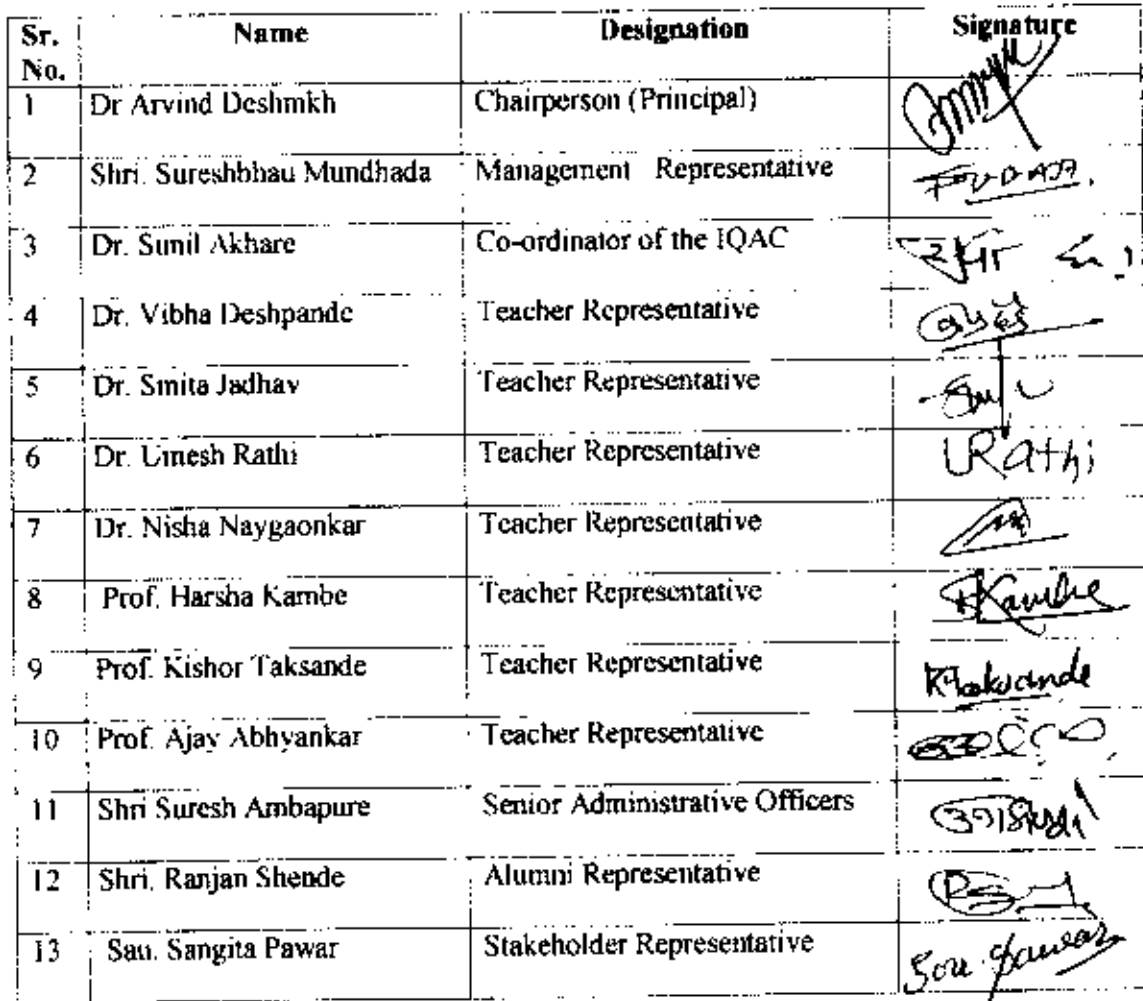 Sr. No. Name Designation Signature
1 Dr Arvind Deshmkh Chairperson (Principal)
2 Shri. Sureshbhau Mundhada Management Representative
3 Dr. Sunil Akhare Co-ordinator of the IQAC
4 Dr. Vibha Deshpande Teacher Representative
5 Dr. Smita Jadhav Teacher Representative
6 Dr. Umesh Rathi Teacher Representative URathi
7 Dr. Nisha Naygaonkar Teacher Representative
8 Prof. Harsha Kambe Teacher Representative
9 Prof. Kishor Taksande Teacher Representative
10 Prof. Ajay Abhyankar Teacher Representative
11 Shri Suresh Ambapure Senior Administrative Officers
12 Shri. Ranjan Shende Alumni Representative
13 Sau. Sangita Pawar Stakeholder Representative